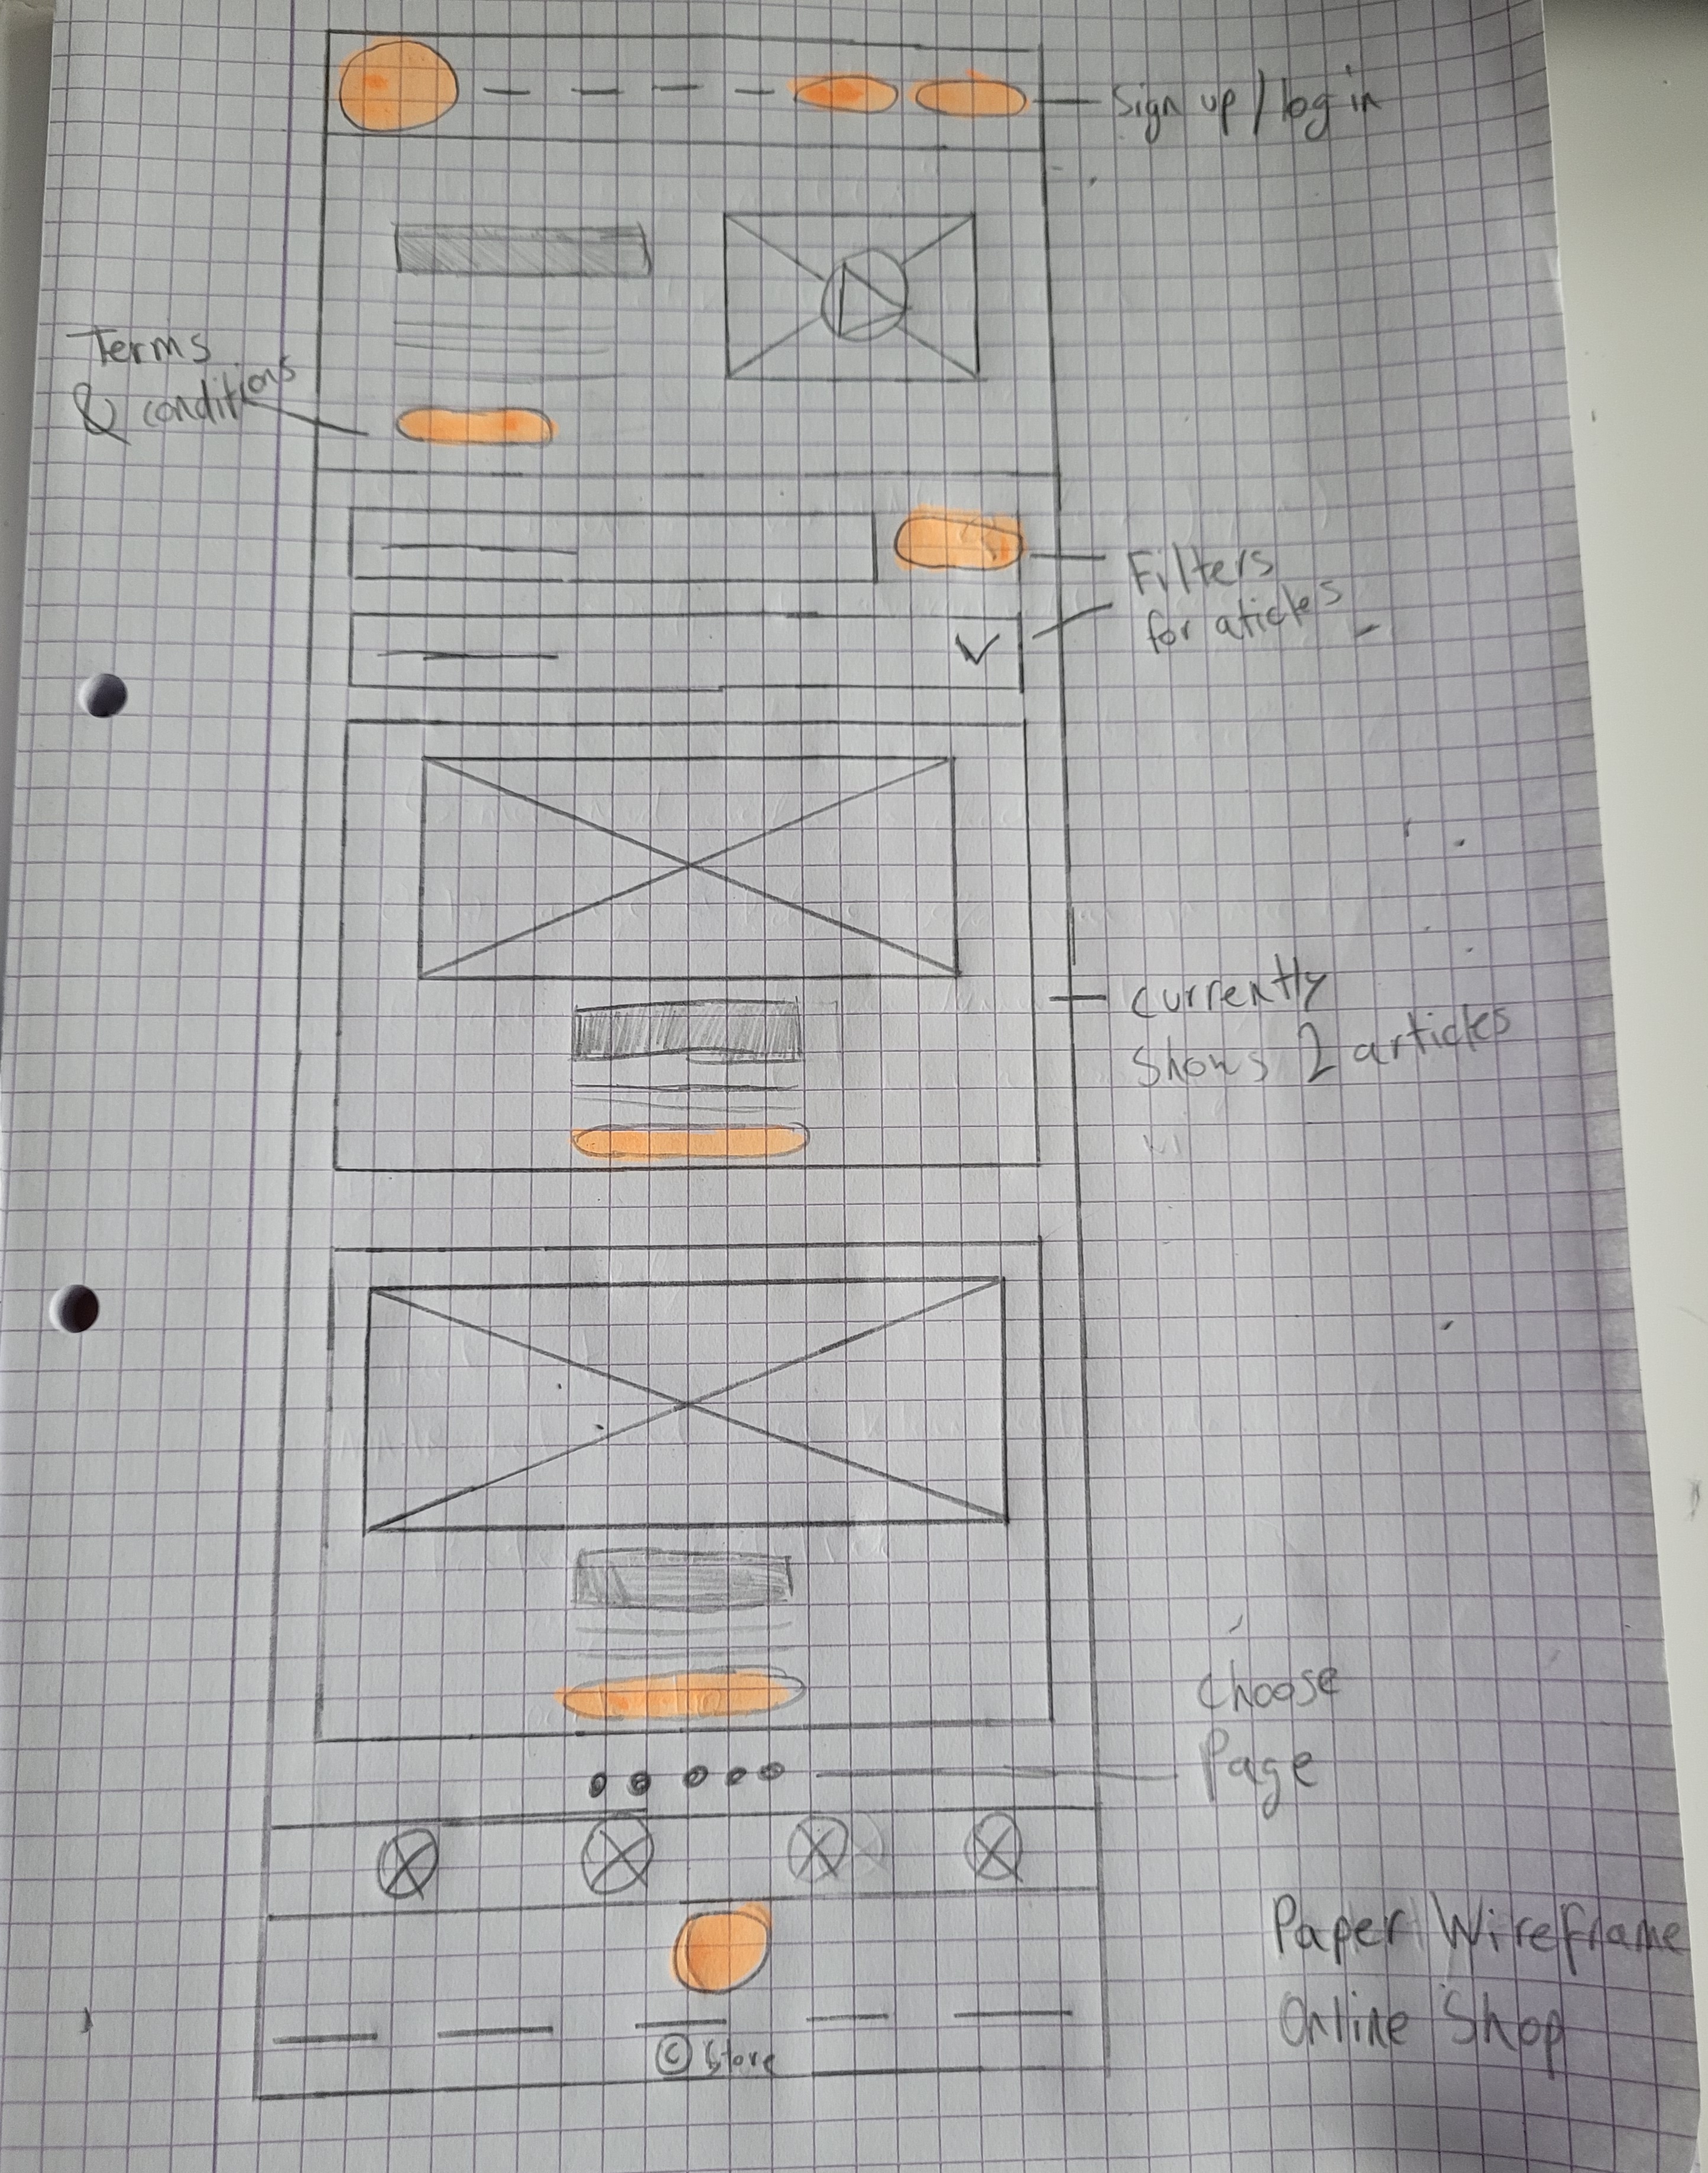 Sign up / log in
Terms
& conditions
Filters
for aticles
Currently
Shows 2 articles
Choose
Page
Paper Wireframe
Online Shop
© Store